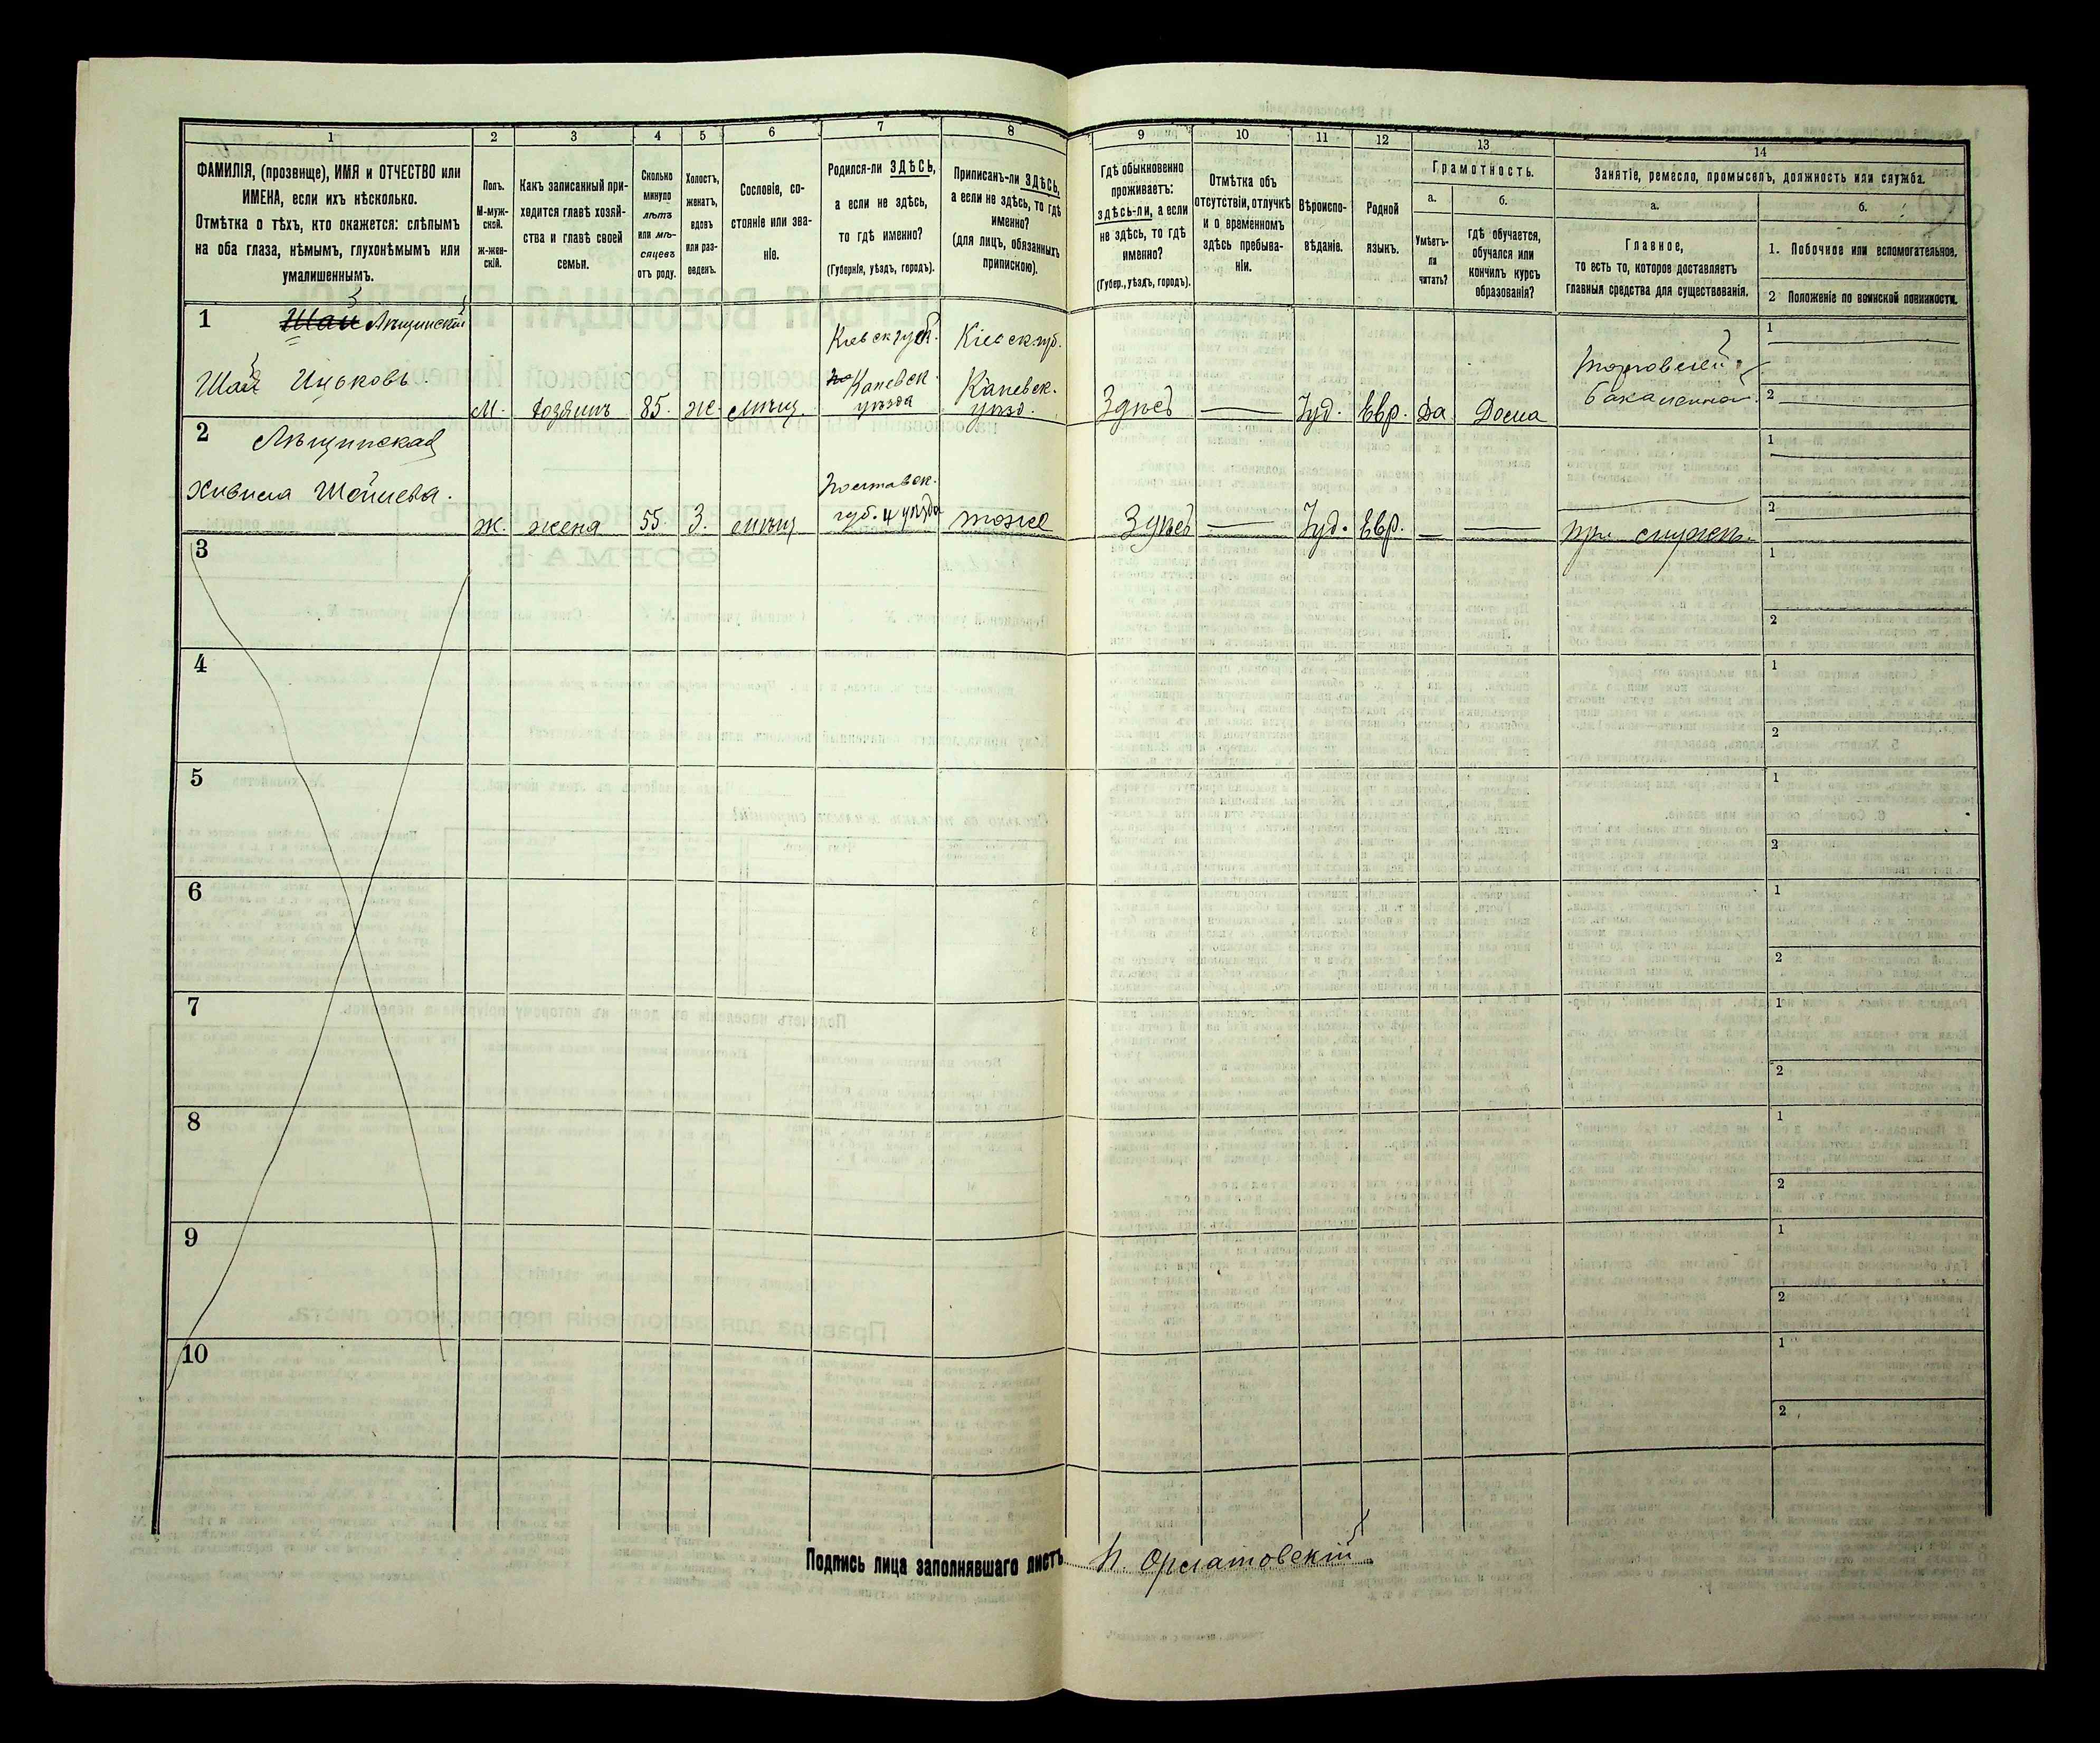 1 2 3 4 5 6 7 8 9 10 11 12 13 14
ФАМИЛІЯ, (прозвище), ИМЯ и ОТЧЕСТВО или
ИМЕНА, если ихъ нѣсколько.
Отмѣтка о тѣхъ, кто окажется: слѣпымъ
на оба глаза, нѣмымъ, глухонѣмымъ или
умалишеннымъ.
Полъ.
М-муж-
ской.
ж-жен-
скій.
Какъ записанный при-
ходится главѣ хозяй-
ства и главѣ своей
семьи.
Сколько
минуло
лѣтъ
или мѣ-
сяцевъ
отъ роду.
Холостъ,
женатъ,
вдовъ
или раз-
веденъ.
Сословіе, со-
стояніе или зва-
ніе.
Родился-ли ЗДѢСЬ,
а если не здѣсь,
то гдѣ именно?
(Губернія, уѣздъ, городъ).
Приписанъ-ли ЗДѢСЬ,
а если не здѣсь, то гдѣ
именно?
(для лицъ, обязанныхъ
припискою).
Гдѣ обыкновенно
проживаетъ:
здѣсь-ли, а если
не здѣсь, то гдѣ
именно?
(Губер., уѣздъ, городъ).
Отмѣтка объ
отсутствіи, отлучкѣ
и о временномъ
здѣсь пребыва-
ніи.
Вѣроиспо-
вѣданіе.
Родной
языкъ.
Грамотность.
а.
Умѣетъ-
ли
читать?
б.
гдѣ обучается,
обучался или
кончилъ курсъ
образованія?
Занятіе, ремесло, промыселъ, должность или служба.
а.
Главное,
то есть то, которое доставляетъ
главныя средства для существованія.
б.
1. Побочное или вспомогательное.
2 Положеніе по воинской повинности.
1 Шай Лѣщинскій
Шай Ицковъ.
М. хозяинъ 85. Ж. мѣщ.
Кіевск губ.
Каневск.
уѣзда
Кіевск. губ.
Каневск.
уѣзд.
Здѣсь Іуд. Евр. Да Дома
Торговлей
бакалейной.
1
2
2 Лѣщинская
Хивися
ж. жена 55 З. мѣщ
Полтавск.
губ. и уѣзда
тоже
Здѣсь Іуд. Евр.
при
1
2
3
1
2
4
1
2
5
1
2
6
1
2
7
1
2
8
1
2
9
1
2
10
1
2
Подпись лица заполнявшаго листъ